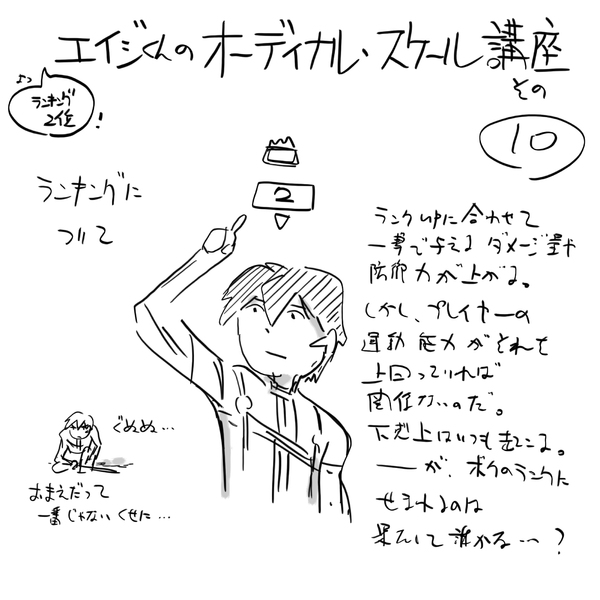 エイジくんのオーディカル・スケール講座
その
10
ランキング
2位
!
2
ランキングに
ついて
ランクupに合わせて
一撃で与えるダメージ量や
防御力が上がる。
しかし、プレイヤーの
運動能力がそれを
上回っていれば
関係ないのだ。
下剋上はいつも起こる。
――が、ボクのランクに
せまれるのは
果たして誰かな…?
ぐぬぬ…
おまえだって
一番じゃないくせに…